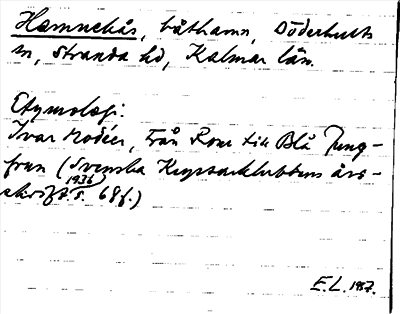 Hamnehås, båthamn, Döderhults
sn, Stranda hd, Kalmar län.
Etymologi:
Ivar Modéer, Från Rone till Blå Jung-
frun (Svenska Kryssarklubbens års-
skrift 1936 s. 68 f.)
E.L. 1957.